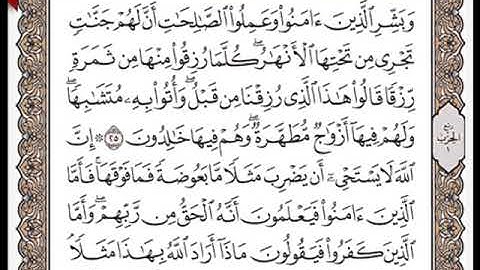 وَبَشِّرِ ٱلَّذِينَ ءَامَنُوا۟ وَعَمِلُوا۟ ٱلصَّٰلِحَٰتِ أَنَّ لَهُمْ جَنَّٰتٍ
تَجْرِى مِن تَحْتِهَا ٱلْأَنْهَٰرُ ۖ كُلَّمَا رُزِقُوا۟ مِنْهَا مِن ثَمَرَةٍ
رِّزْقًا ۙ قَالُوا۟ هَٰذَا ٱلَّذِى رُزِقْنَا مِن قَبْلُ ۖ وَأُتُوا۟ بِهِۦ مُتَشَٰبِهًا ۖ
وَلَهُمْ فِيهَآ أَزْوَٰجٌ مُّطَهَّرَةٌ ۖ وَهُمْ فِيهَا خَٰلِدُونَ ۝٢٥ ۞ إِنَّ
ٱللَّهَ لَا يَسْتَحْىِۦٓ أَن يَضْرِبَ مَثَلًا مَّا بَعُوضَةً فَمَا فَوْقَهَا ۚ فَأَمَّا
ٱلَّذِينَ ءَامَنُوا۟ فَيَعْلَمُونَ أَنَّهُ ٱلْحَقُّ مِن رَّبِّهِمْ ۖ وَأَمَّا
ٱلَّذِينَ كَفَرُوا۟ فَيَقُولُونَ مَاذَآ أَرَادَ ٱللَّهُ بِهَٰذَا مَثَلًا ۘ
ربع
الحزب